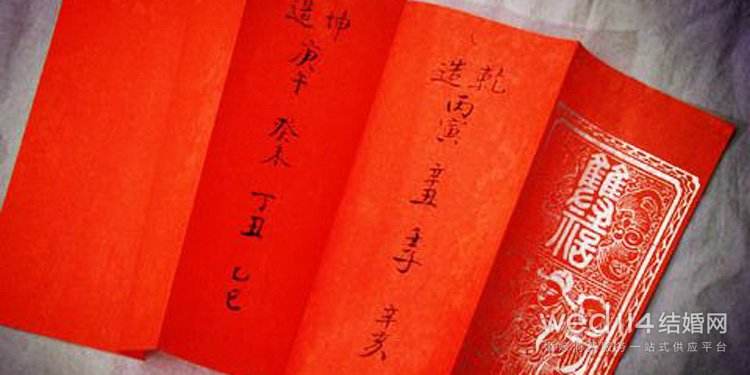 乾造
丙寅 辛丑 壬子 辛亥
坤造
庚午 癸未 丁丑 乙巳
wed114结婚网
一站式供应平台